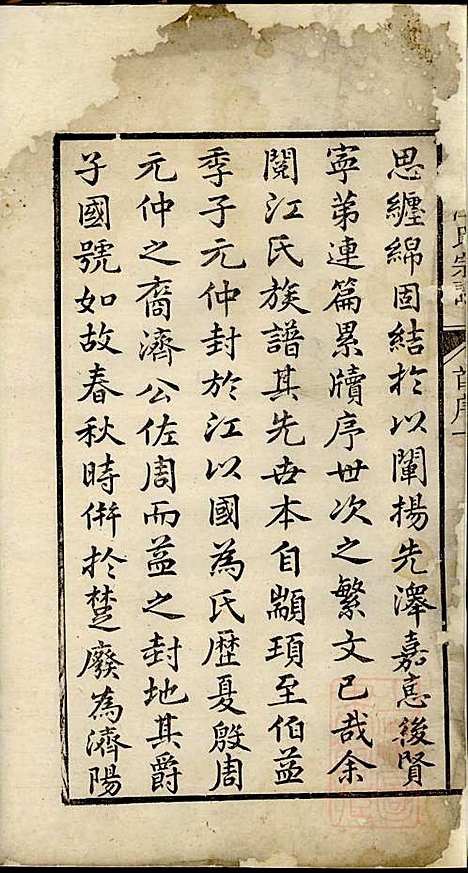 思纏綿固結於以闡揚先澤嘉惠後賢
寧苐連篇累牘序世次之繁文已哉余
閱江氏族譜其先世本自顓頊至伯益
季子元仲封於江以國為氏歷夏殷周
元仲之裔濟公佐周而益之封地其爵
子國號如故春秋時併於楚廢為濟陽
氏宗譜
首序一